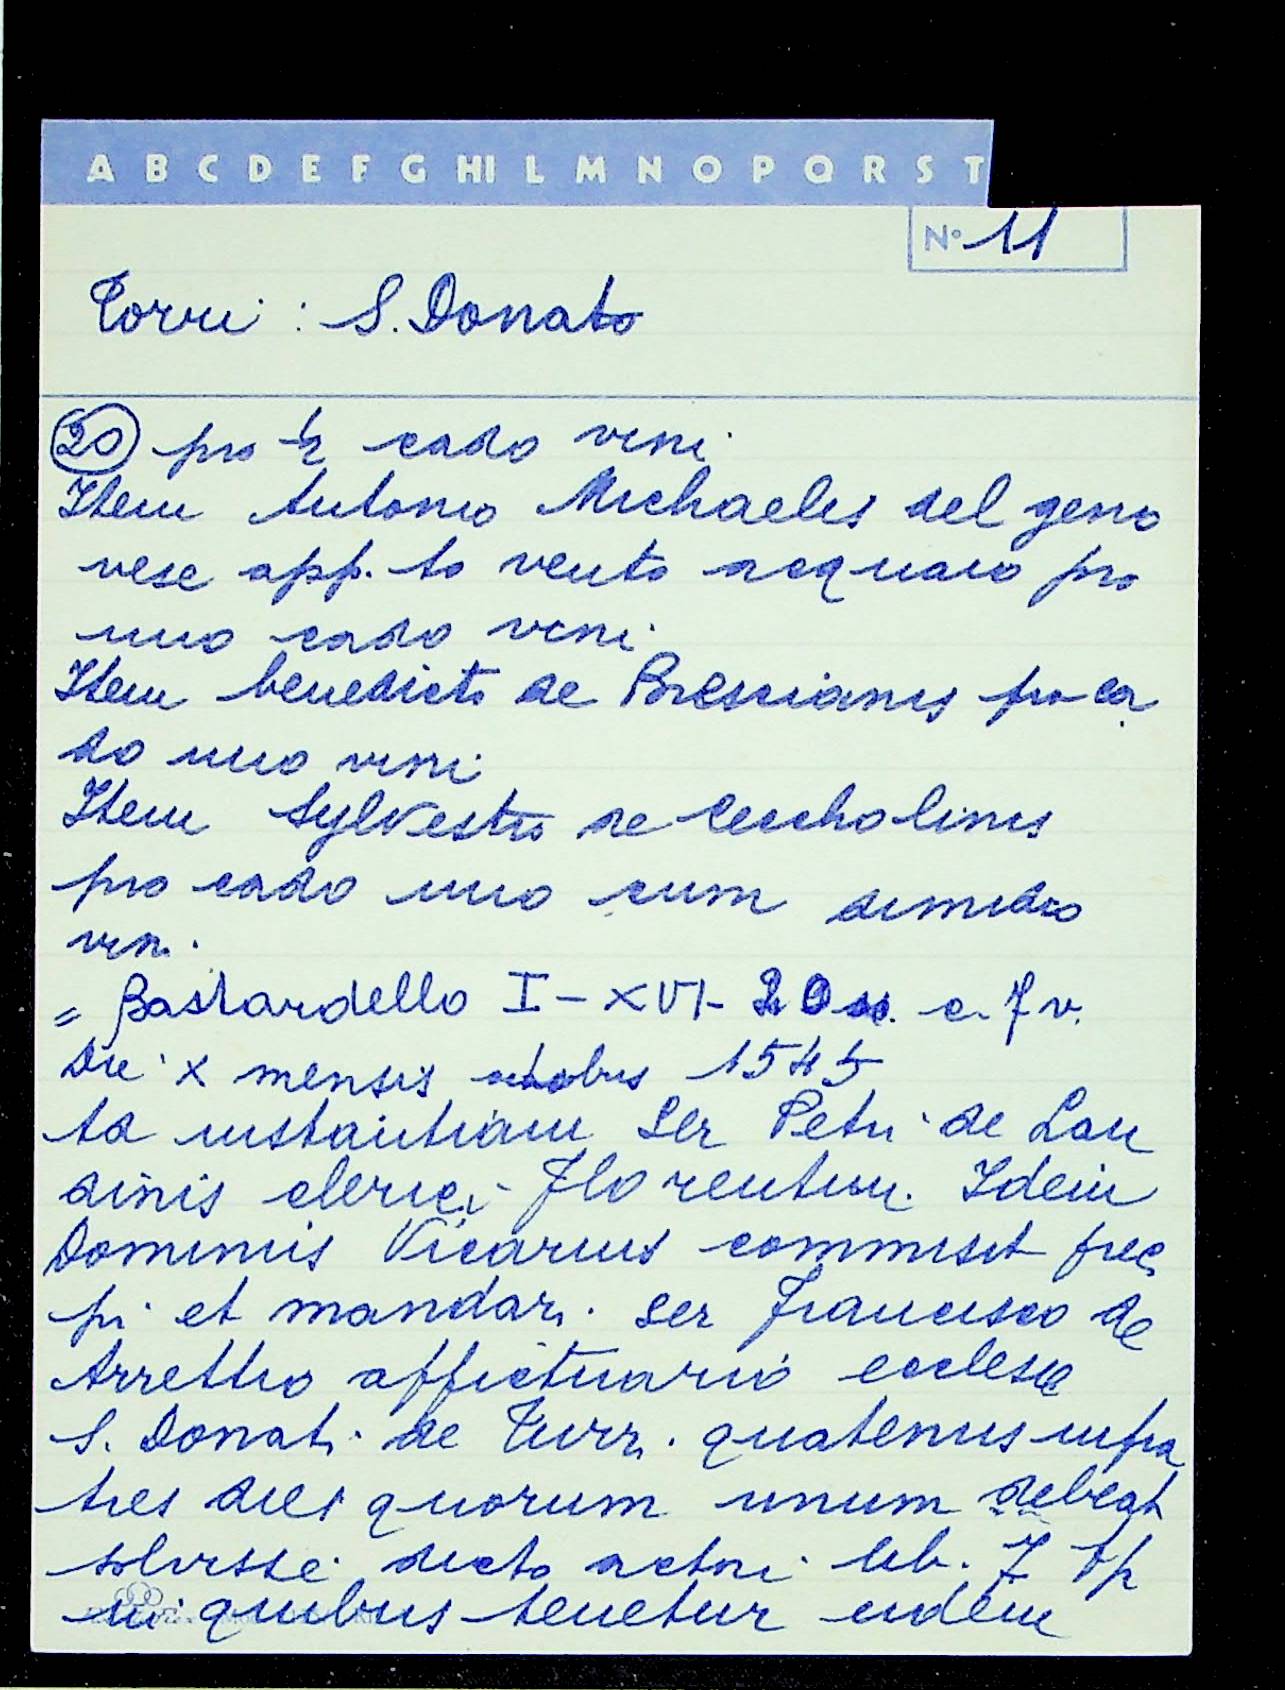 A B C D E F G HI L M N O P Q R S T
N° 11
Torri : S. Donato
20 pro ½ cado vini
Item Antonio Michaelis del geno
vese app.to vento acquaio pro
uno cado vini
Item benedicto de Brescianis pro ca
do uno vini
Item Sylvestro de Cecholinis
pro cado uno cum dimidio
vin.
= Bastardello I - XVI - 20 c. 7 v.
Die X mensis octobris 1545
Ad instantiam Ser Petri de Lan
dinis clerici Florentin. Idem
Dominus Vicarius commisit prec
pi et mandari Ser Francisco de
Arrettio affictuario ecclesie
S. Donati de Turri quatenus infra
tres dies quorum unum debeat
solvisse dicto actori lib. 7 
in quibus tenetur eidem